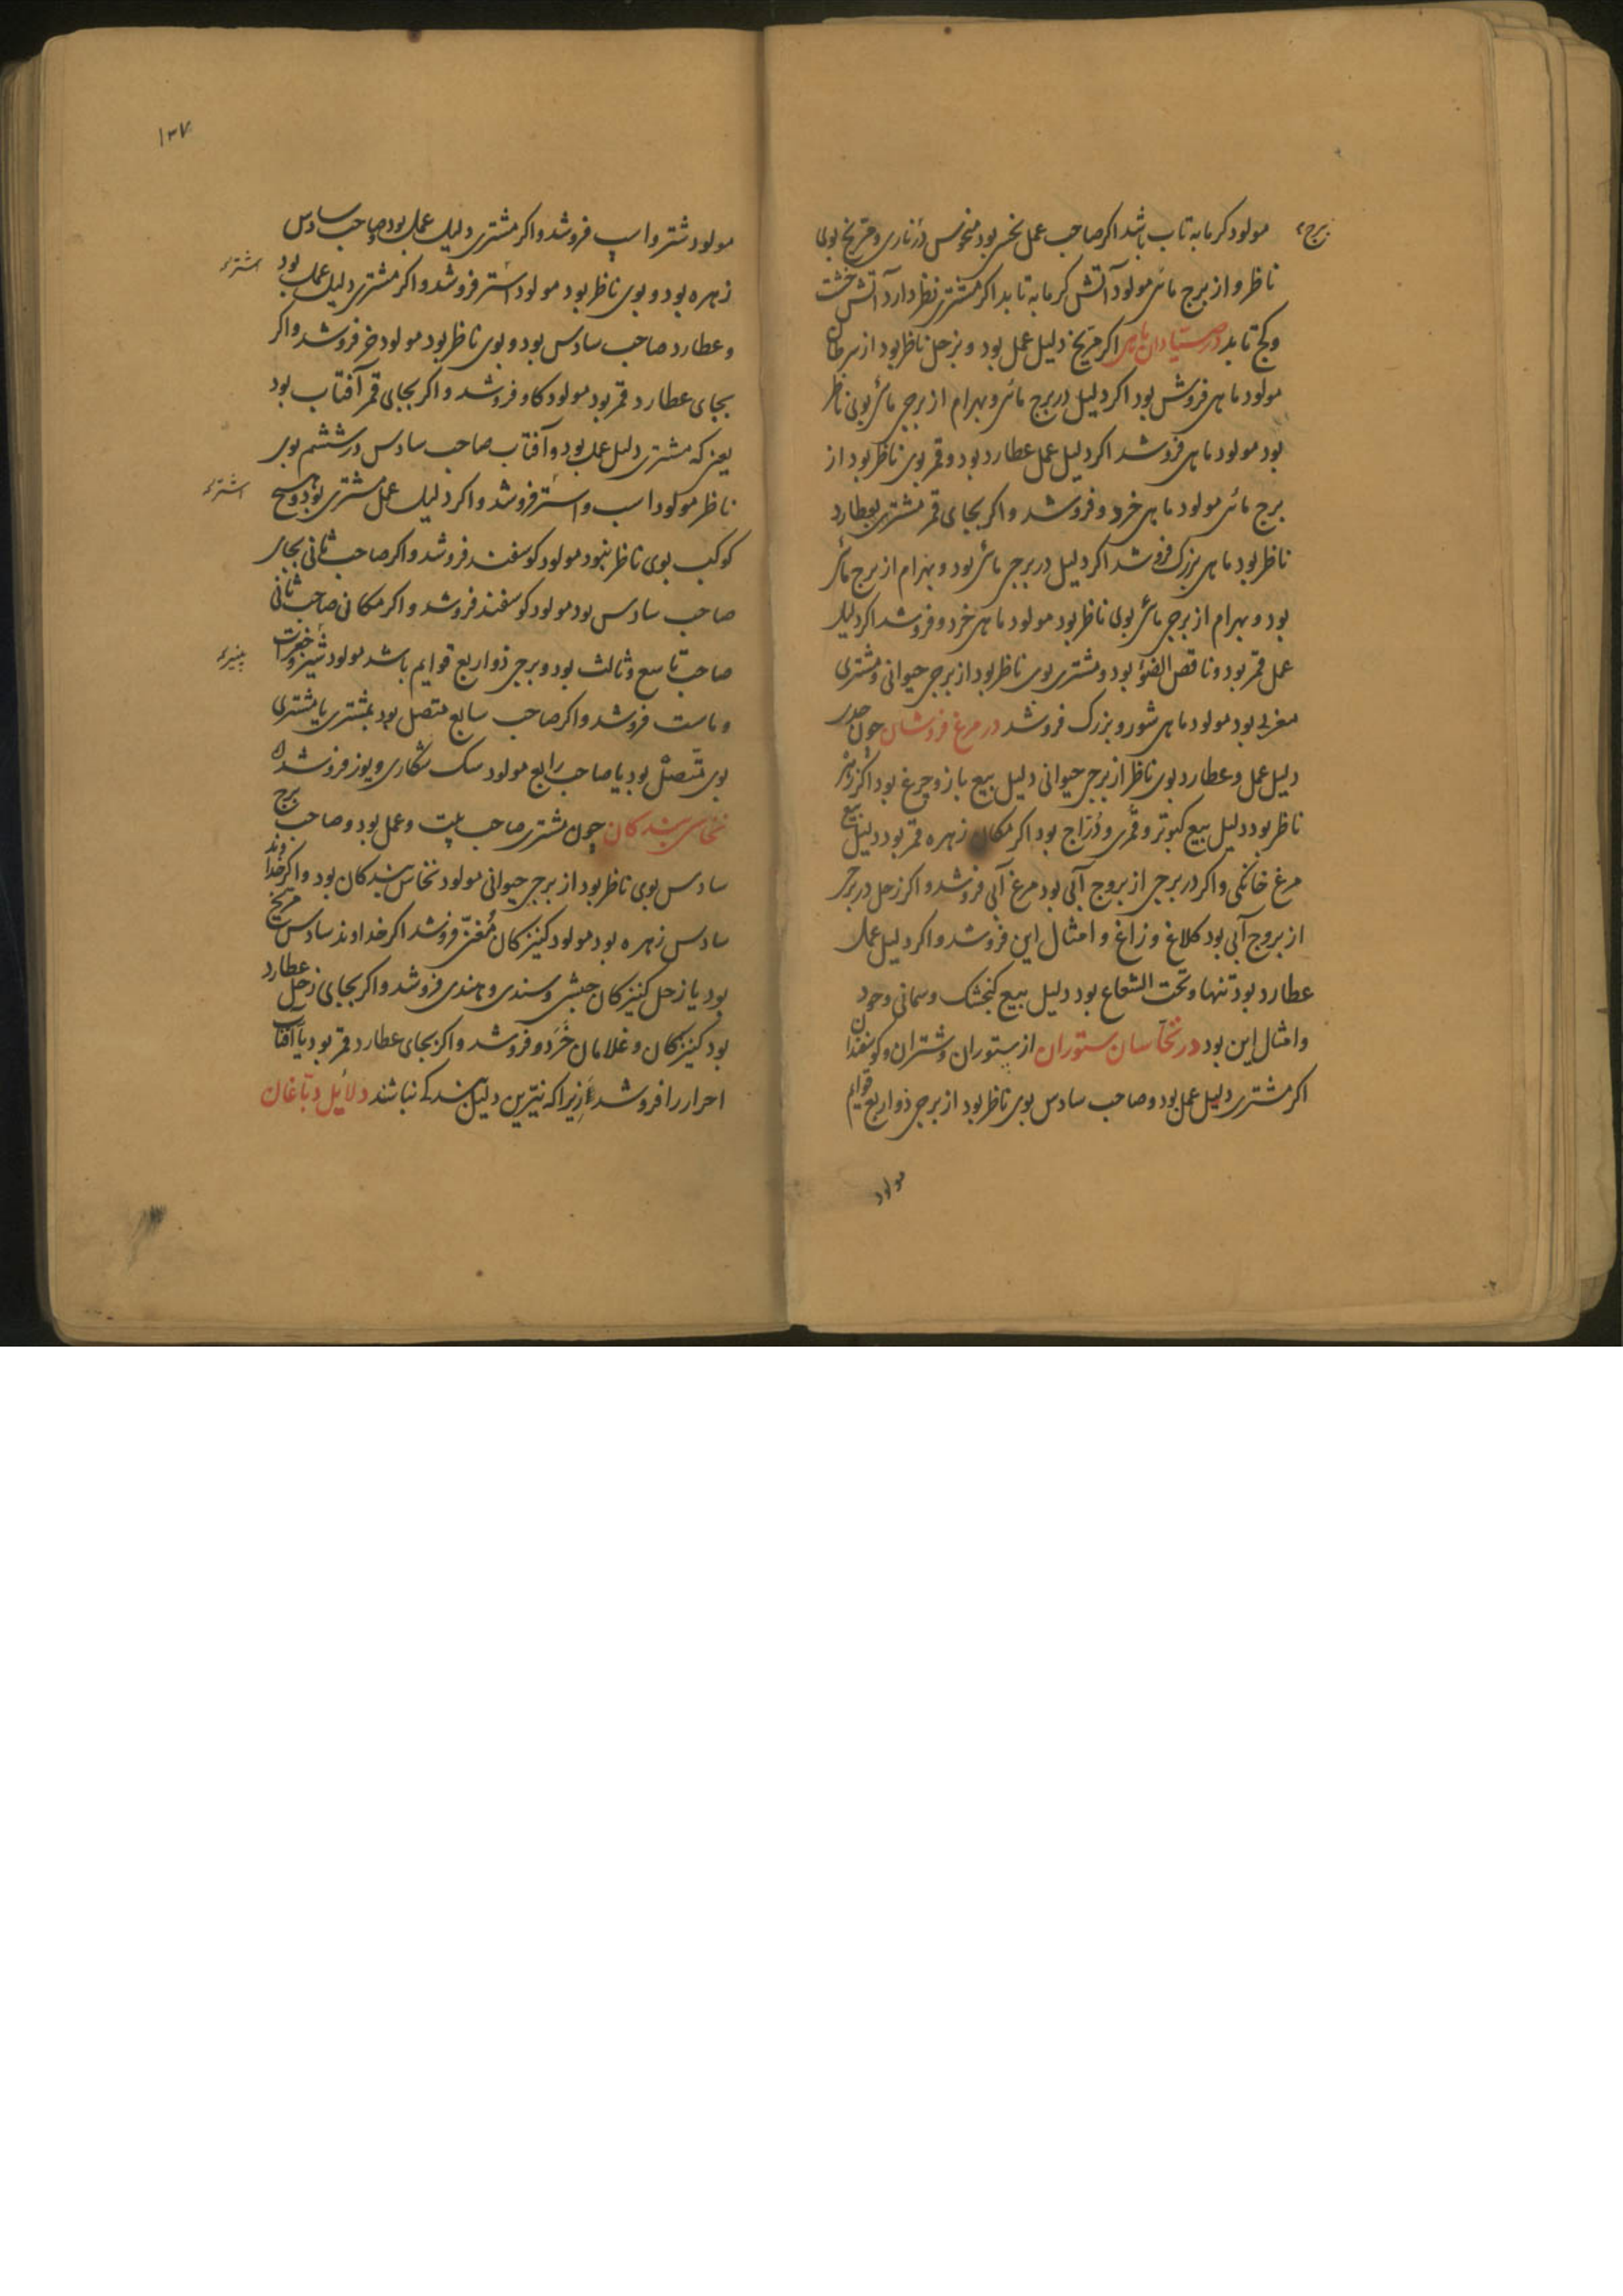 مولود کرمابه تاب باشد اکر صاحب عمل نحس بود منحوس در ناری و مریخ بوی
برج
ناظر و از برج مائی مولود آتش کرمابه تابد اکر مشتری نظر دارد آتش خشت
و کج تابد در صیادان ماهی اکر مریخ دلیل عمل بود و بزحل ناظر بود از سرطان
مولود ماهی فروش بود اکر دلیل در برج مائی و بهرام از برجی مائی بوی ناظر
بود مولود ماهی فروشد اکر دلیل عمل عطارد بود و قمر بوی ناظر بود از
برج مائی مولود ماهی خرد و فروشد و اکر بجای قمر مشتری بعطارد
ناظر بود ماهی بزرک فروشد اکر دلیل در برجی مائی بود و بهرام از برج مائی
بود و بهرام از برجی مائی بوی ناظر بود مولود ماهی خرد و فروشد اکر دلیل
عمل قمر بود و ناقص الضوء بود و مشتری بوی ناظر بود از برجی حیوانی و مشتری
مغربی بود مولود ماهی شور و بزرک فروشد در مرغ فروشان چون
دلیل عمل و عطارد بوی ناظر از برجی حیوانی دلیل بیع باز و چرغ بود اکر زهره
ناظر بود دلیل بیع کبوتر و قمری و دراج بود اکر مکان زهره قمر بود دلیل بیع
مرغ خانکی و اکر در برجی از بروج آبی بود مرغ آبی فروشد و اکر زحل در برجی
از بروج آبی بود کلاغ و زاغ و امثال این فروشد و اکر دلیل عمل
عطارد بود تنها و تحت الشعاع بود دلیل بیع کنجشک و سمانی و چون
و امثال این بود در نخاسان ستوران از ستوران و شتران و کوسفندان
اکر مشتری دلیل عمل بود و صاحب سادس بوی ناظر بود از برجی ذو اربع قوایم
مولود
۱۳۷
مولود شتر و اسپ فروشد و اکر مشتری دلیل عمل بود و صاحب سادس
زهره بود و بوی ناظر بود مولود استر فروشد و اکر مشتری دلیل عمل بود
و عطارد صاحب سادس بود و بوی ناظر بود مولود خر فروشد و اکر
بجای عطارد قمر بود مولود کاو فروشد و اکر بجای قمر آفتاب بود
یعنی که مشتری دلیل عمل بود و آفتاب صاحب سادس در ششم بوی
ناظر مولود اسب و استر فروشد و اکر دلیل عمل مشتری بود و هیچ
کوکب بوی ناظر نبود مولود کوسفند فروشد و اکر صاحب ثانی بجای
صاحب سادس بود مولود کوسفند فروشد و اکر مکان صاحب ثانی
صاحب تاسع و ثالث بود و برجی ذو اربع قوایم باشد مولود شیر و جغرات
و ماست فروشد و اکر صاحب سابع متصل بود بمشتری یا مشتری
بوی متصل بود یا صاحب رابع مولود سک شکاری و یوز فروشد
نخاسی بندکان چون مشتری صاحب بیت و عمل بود و صاحب برج
سادس بوی ناظر بود از برجی حیوانی مولود نخاس بندکان بود و اکر خداوند
سادس زهره بود مولود کنیزکان مغنی فروشد اکر خداوند سادس مریخ
بود یا زحل کنیزکان حبشی و سندی و هندی فروشد و اکر بجای زحل عطارد
بود کنیزکان و غلامان خرد و فروشد و اکر بجای عطارد قمر بود یا آفتاب
احرار را فروشد زیرا که نیرین دلیل بندکی نباشند دلائل دباغان